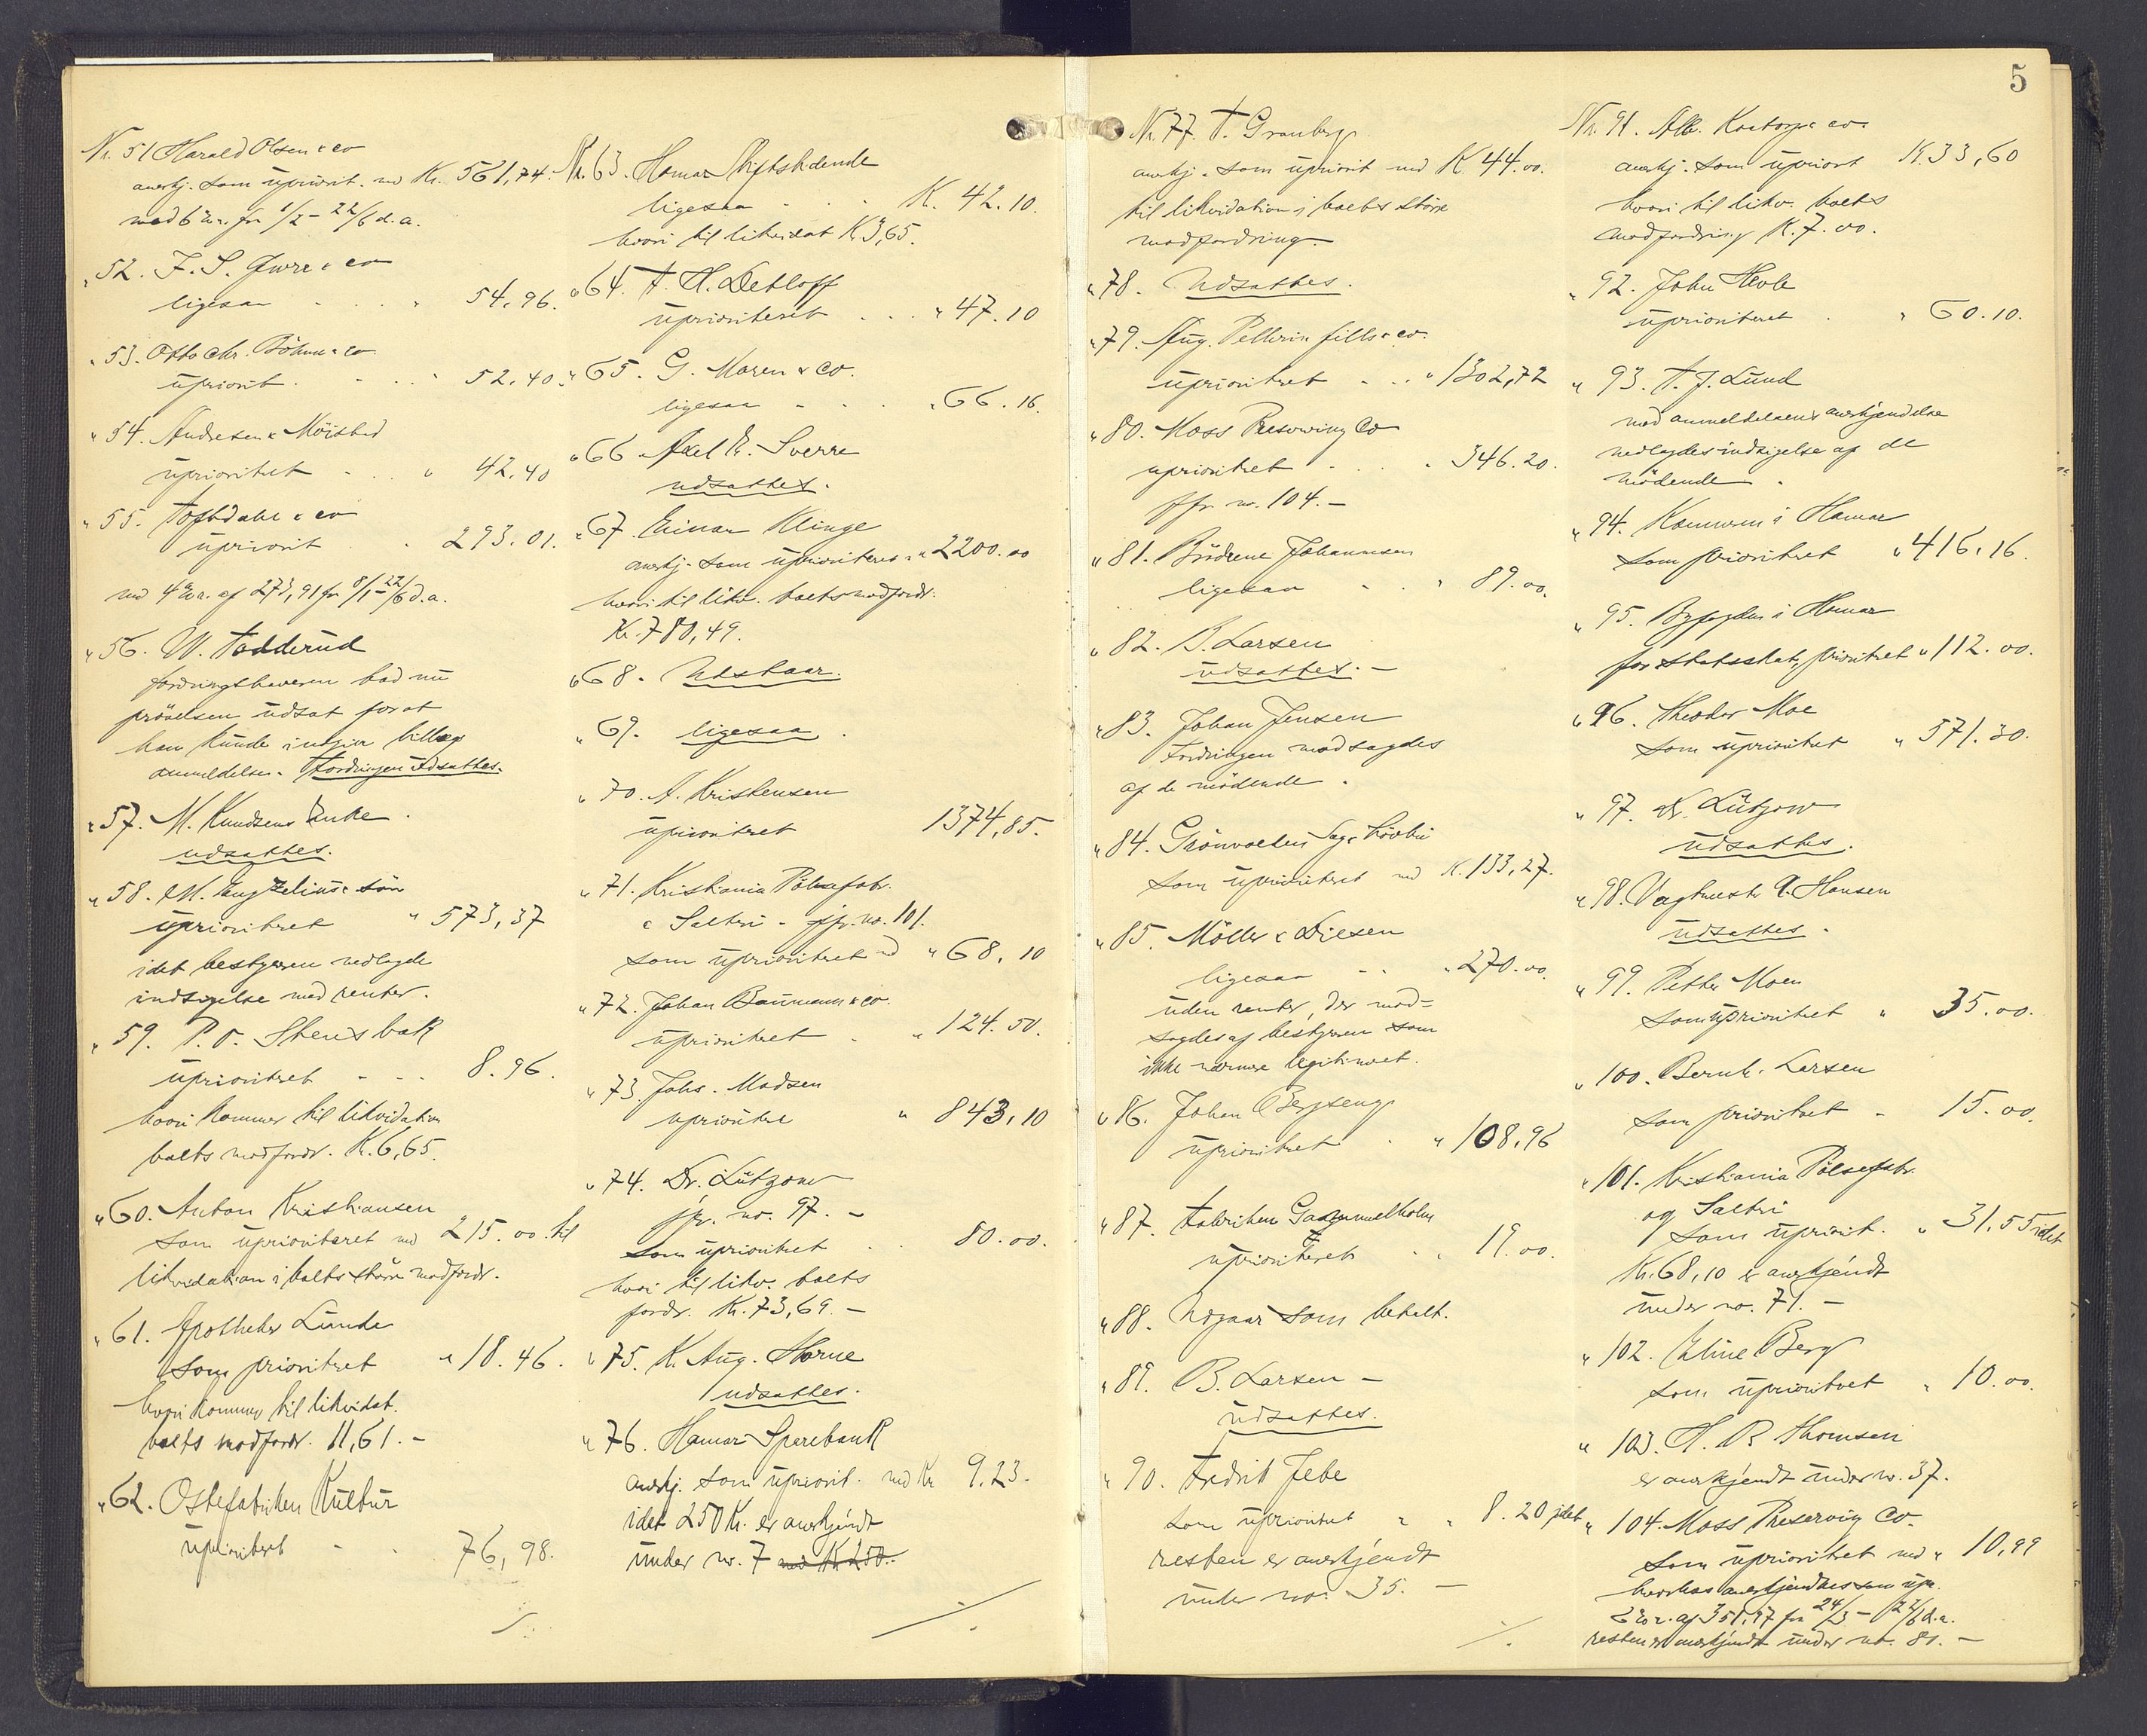 5
Nr. 51 Harald Olsen & co
anerkj. som upriorit. med Kr. 561,74.
med 6 % r. fra 1/2 - 22/6 d.a.
" 52. J. S. & co
ligesaa . . " 54.96.
" 53. Otto Chr. Böhme & co
upriorit. . . . " 52.40.
" 54. Andresen & Möisted
uprioritet . . " 42.40
" 55. Toftdahl & co
upriorit . " 293.01.
med 4 % r. af 273,91 fra 8/1 - 22/6 d.a.
" 56. W. Todderud
fordringshaveren bad nu
prövelsen udsat for at
han kunde indgive tillæg
anmeldelse. Fordringen udsattes.
" 57. M. Knudsens Enke.
udsattes.
" 58. M. Engzelius & sön
uprioriteret " 573,37
idet bestyreren nedlagde
indsigelse mod renter.
" 59. P. O. Stensbak
uprioriteret - - . 8.96.
hvori kommer til likvidation
boets modfordr. K. 6,65.
" 60. Anton Kristiansen
som uprioriteret med 215.00 til
likvidation i boets större modfordr.
" 61. Apotheker Lunde
som prioriteret " 18.46.
hvori kommer til likvidat.
boets modfordr. 11,61. -
" 62. Ostefabriken Kultur
uprioriteret - . 76,98.
Nr. 63. Hamar Stiftstidende
ligesaa . . K. 42.10.
hvori til likvidat K. 3,65.
" 64. T. H. Detloff
uprioriteret . . . " 47.10
" 65. G. Maren & co.
ligesaa - . . " 66.16.
" 66 Axel E. Sverre
udsattes.
" 67. Einar Klinge
anerkj. som uprioriteret . " 2200.00
hvori til likv. boets modfordr.
Kr. 780,49.
" 68. Udstaar.
" 69. ligesaa.
" 70. A. Kristensen
uprioriteret 1374,85.
" 71. Kristiania Pölsefabr.
& Salteri - jfr. no. 101.
som uprioriteret med " 68,10
" 72. Johan Baumann & co.
uprioriteret . " 124.50.
" 73. Johs. Madsen
uprioritere " 843,10
" 74. Dr. Lützow
jfr. no. 97. -
som uprioriteret . . 80.00.
hvori til likv. boets
fordr. Kr. 73,69. -
" 75. K. Aug. Horne
udsattes.
" 76. Hamar Sparebank
anerkj. som upriorit. med Kr 9.23.
idet 250 Kr. er anerkjendt
under no. 7 med Kr 250.
Nr. 77. T. Granberg
anerkj. som upriorit med K. 44.00.
til likvidation i boets större
modfordring.
" 78. Udsattes.
" 79. Aug. Pellerin fills & co.
uprioriteret - . . " 1302,72
" 80. Moss Preserving Co
uprioriteret - . . " 346.20.
jfr. no. 104. -
" 81. Brödrene Johannesen
ligesaa . " 89.00.
" 82. B. Larsen
udsattes. -
" 83. Johan Jensen
Fordringen modsagdes
af de mödende.
" 84. Grönvoldens Sag &
som uprioriteret med K. 133,27.
" 85. Möller & Diesen
ligesaa - - " 270.00.
uden renter, der mod=
sagdes af bestyreren som
ikke nærmere legitimeret.
" 86. Johan Bergseng
uprioriteret . " 108,96
" 87. Fabriken Gammelholm
uprioriteret . " 19.00.
" 88. Udgaar som betalt.
" 89. B. Larsen -
udsattes.
" 90. Fredrik Jebe
som uprioritet " " 8.20 idet
resten er anerkjendt
under no. 35. -
Nr. 91. Alb. & co.
anerkj. som upriorit K. 33,60
hvori til likv. boets
modfordring K. 7.00.
" 92. John Hevle
uprioriteret . " 60.10.
" 93. T. J. Lund
mod anmeldelsens anerkjendelse
nedlagdes indsigelse af de
mödende.
" 94. Kæmneren i Hamar
som prioriteret " 416,16.
" 95. Byfogden i Hamar
for statsskat, prioriteret " 112.00.
" 96. Theodor Moe
som uprioritet " 571.30.
" 97. Dr. Lützow
udsattes.
" 98. Vagtmester A. Hansen
udsattes.
" 99. Petter Moen
som uprioriteret " 35.00.
" 100. Bernh. Larsen
som prioriteret " 15.00.
" 101. Kristiania Pölsefabr.
og Salteri
som upriorit. " 31.55 idet
Kr. 68,10 er anerkjendt
under no. 71. -
" 102. Eline Berg
som uprioritret " 10.00.
" 103. H. B Thomsen
er anerkjendt under no. 37.
" 104. Moss Preserving Co.
som uprioriteret med " 10,99
hvorhos anerkjendtes som upr.
6 % r. af 351,97 fra 24/3 - 22/6 d.a.
resten er anerkjendt under no. 80. -